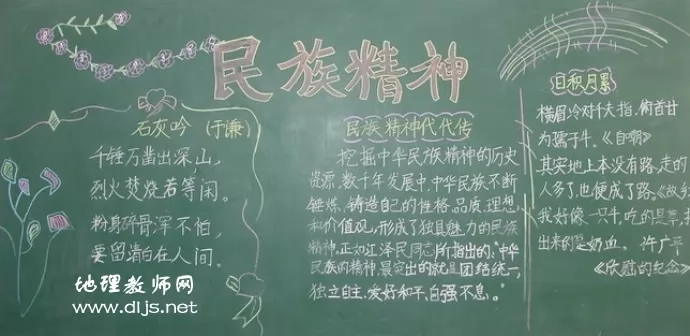 民族精神
石灰吟 (于谦)
千锤万凿出深山，
烈火焚烧若等闲。
粉身碎骨浑不怕，
要留清白在人间。
民族精神代代传
挖掘中华民族精神的历史
资源，数千年发展中，中华民族不断
锤炼，铸造自己的性格，品质，理想
和价值观，形成了独具魅力的民族
精神，正如江泽民同志所指出的，"中华
民族的精神，最突出的就是团结统一，
独立自主，爱好和平，自强不息。"
日积月累
横眉冷对千夫指，俯首甘
为孺子牛。《自嘲》
其实地上本没有路，走的
人多了，也便成了路。《故
我好像一只牛，吃的是草，挤
出来的是奶血。 许广平
《欣慰的纪念》
地理教师网
www.dljs.net